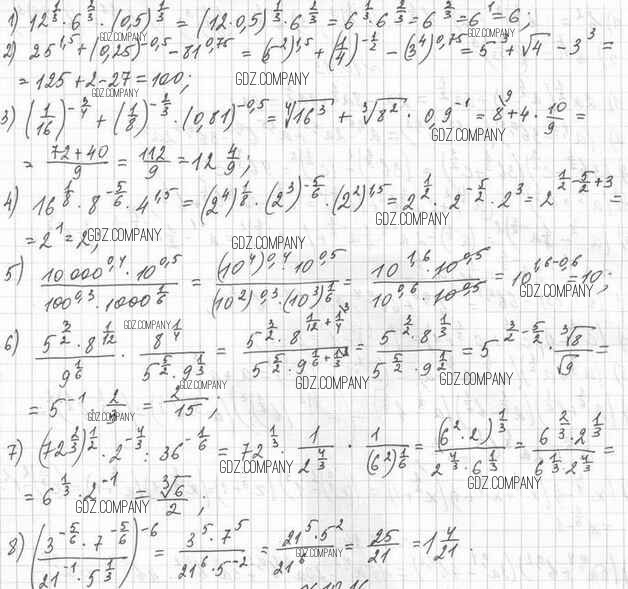 1) 12^{1/3} · 6^{2/3} · (0,5)^{1/3} = (12·0,5)^{1/3} · 6^{2/3} = 6^{1/3} · 6^{2/3} = 6^{2/3} = 6^1 = 6;
GDZ.COMPANY GDZ.COMPANY
2) 25^{1,5} + (0,25)^{-0,5} - 81^{0,75} = (5^2)^{1,5} + (1/4)^{-1/2} - (3^4)^{0,75} = 5^3 + √4 - 3^3 =
= 125 + 2 - 27 = 100; GDZ.COMPANY
GDZ.COMPANY
3) (1/16)^{-3/4} + (1/8)^{-2/3} · (0,81)^{-0,5} = ⁴√16^3 + ³√8^2 · 0,9^{-1} = 8 + 4 · 10/9 =
GDZ.COMPANY
= (72+40)/9 = 112/9 = 12 4/9;
4) 16^{1/8} · 8^{-5/6} · 4^{1,5} = (2^4)^{1/8} · (2^3)^{-5/6} · (2^2)^{1,5} = 2^{1/2} · 2^{-5/2} · 2^3 = 2^{1/2 - 5/2 + 3} =
GDZ.COMPANY
= 2^1 = 2; GDZ.COMPANY GDZ.COMPANY
5) (10000^{0,4} · 10^{0,5})/(100^{0,3} · 1000^{1/6}) = ((10^4)^{0,4} · 10^{0,5})/((10^2)^{0,3} · (10^3)^{1/6}) = (10^{1,6} · 10^{0,5})/(10^{0,6} · 10^{0,5}) = 10^{1,6-0,6} = 10;
GDZ.COMPANY
GDZ.COMPANY
6) (5^{3/2} · 8^{1/12})/(9^{1/6}) · (8^{1/4})/(5^{5/2} · 9^{1/3}) = (5^{3/2} · 8^{1/12 + 1/4})/(5^{5/2} · 9^{1/6 + 1/3}) = (5^{3/2} · 8^{1/3})/(5^{5/2} · 9^{1/2}) = 5^{3/2 - 5/2} · ³√8/√9 =
GDZ.COMPANY GDZ.COMPANY
GDZ.COMPANY
= 5^{-1} · 2/3 = 2/15;
GDZ.COMPANY
7) (72^{2/3})^{1/2} · 2^{-4/3} : 36^{-1/6} = 72^{1/3} · 1/2^{4/3} · 1/(6^2)^{1/6} = (6^2·2)^{1/3}/(2^{4/3} · 6^{1/3}) = (6^{2/3} · 2^{1/3})/(6^{1/3} · 2^{4/3}) =
GDZ.COMPANY GDZ.COMPANY
= 6^{1/3} · 2^{-1} = ³√6/2;
GDZ.COMPANY
8) ((3^{-5/6} · 7^{-5/6})/(21^{-1} · 5^{1/3}))^{-6} = (3^5 · 7^5)/(21^6 · 5^{-2}) = (21^5 · 5^2)/21^6 = 25/21 = 1 4/21.
GDZ.COMPANY